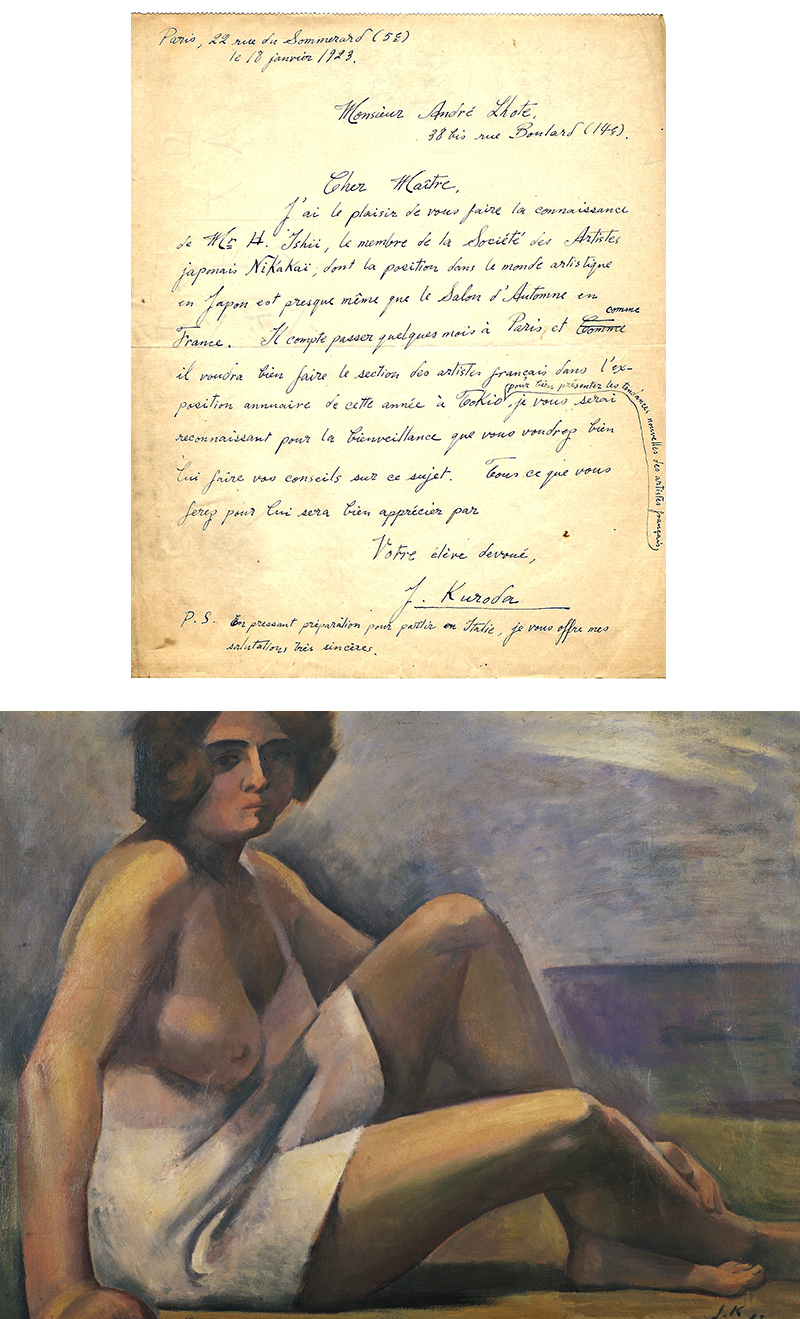 Paris, 22 rue du Sommerard (5E)
le 18 janvier 1923.
Monsieur André Lhote,
38 bis rue Boulard (14e).
Cher Maître,
J'ai le plaisir de vous faire la connaissance
de Mr H. Ishii, le membre de la Société des Artistes
japonais Nikakaï, dont la position dans le monde artistique
en Japon est presque même que le Salon d'Automne en
comme
France. Il compte passer quelques mois à Paris et Comme
il voudra bien faire le section des artistes français dans l'ex-
pour bien présenter les tendances nouvelles des artistes français,
position annuaire de cette année à Tokio, je vous serai
reconnaissant pour la bienveillance que vous voudrez bien
lui faire vos conseils sur ce sujet. Tous ce que vous
ferez pour lui sera bien apprécier par
Votre élève devoué,
J. Kuroda
P. S. En pressant préparation pour partir en Italie, je vous offre mes
salutations très sincères.
J. K